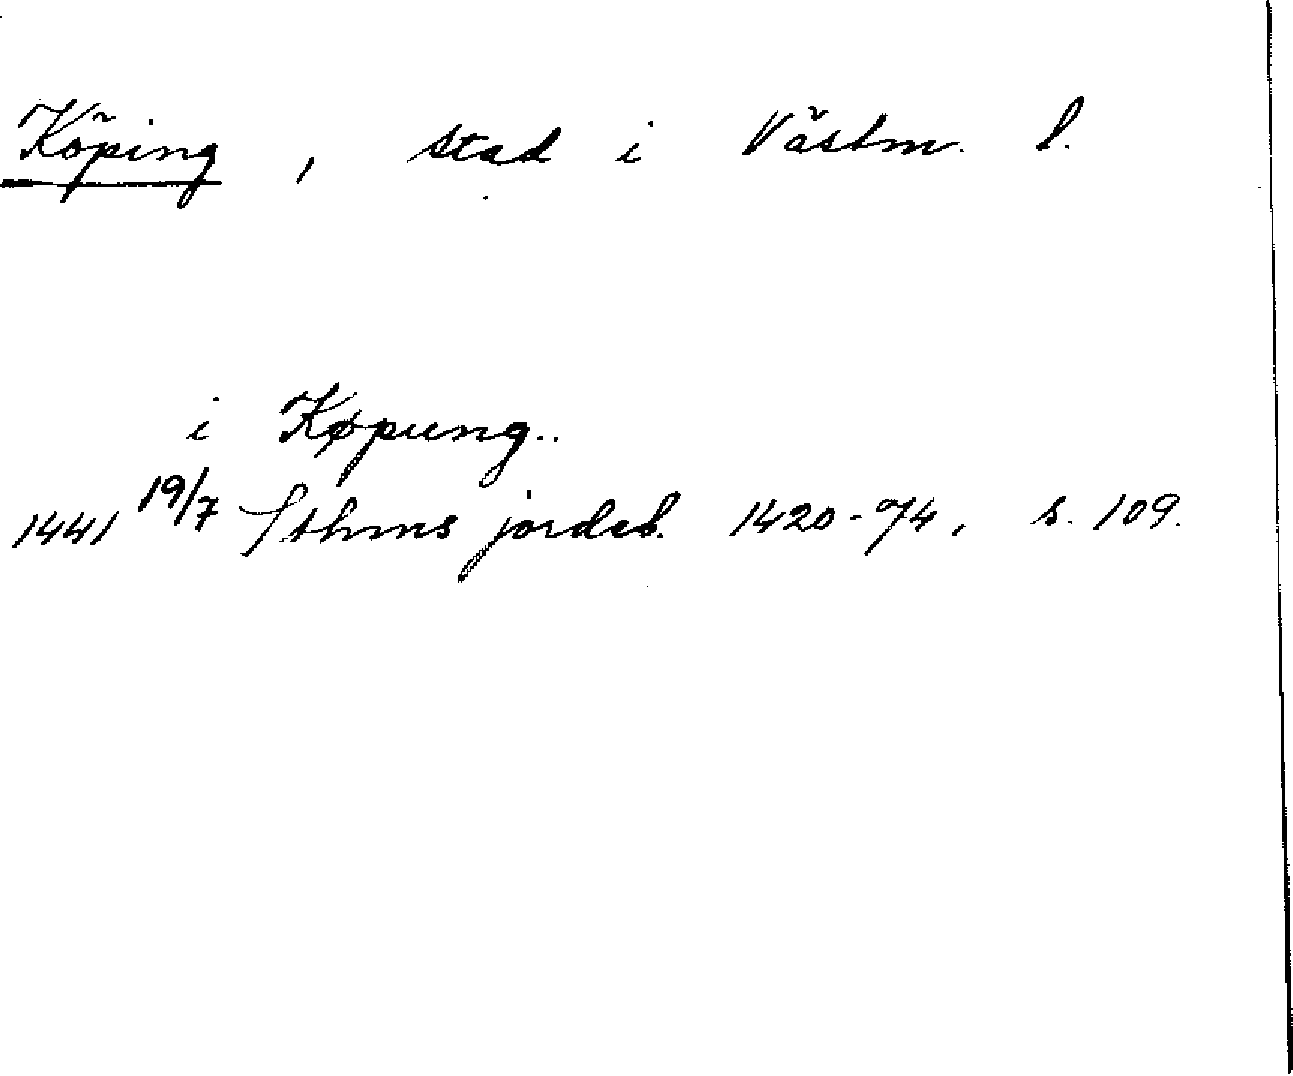 Köping, stad i Västm. l.
i Køpung..
1441 19/7 Sthms jordeb. 1420-74, s. 109.